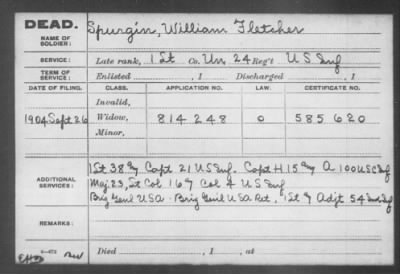 DEAD.
NAME OF SOLDIER: Spurgin, William Fletcher
SERVICE: Late rank, 1 St Co. Un, 24 Reg't U S Inf
TERM OF SERVICE: Enlisted , 1 Discharged , 1
DATE OF FILING. CLASS. APPLICATION NO. LAW. CERTIFICATE NO.
Invalid,
1904 Sept 26 Widow, 814248 0 585620
Minor,
1St 38 Capt 21 US Inf. Capt H 15 A 100 USC Inf
ADDITIONAL SERVICES: Maj 23, Lt Col 16 Col 4 U S Inf
Brig Genl USA. Brig Genl USA Ret. 1St Adjt 54 Inf
REMARKS:
Died , 1 , at